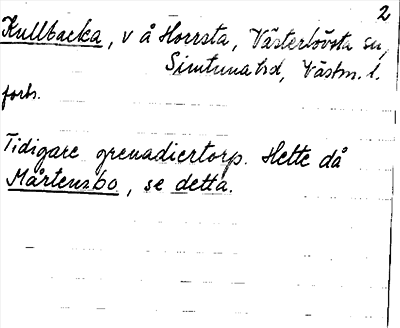 2
Kullbacka, v å Horrsta, Västerlövsta sn,
Simtuna hd, Västm. l.
forts.
Tidigare grenadiertorp. Hette då
Mårtensbo, se detta.